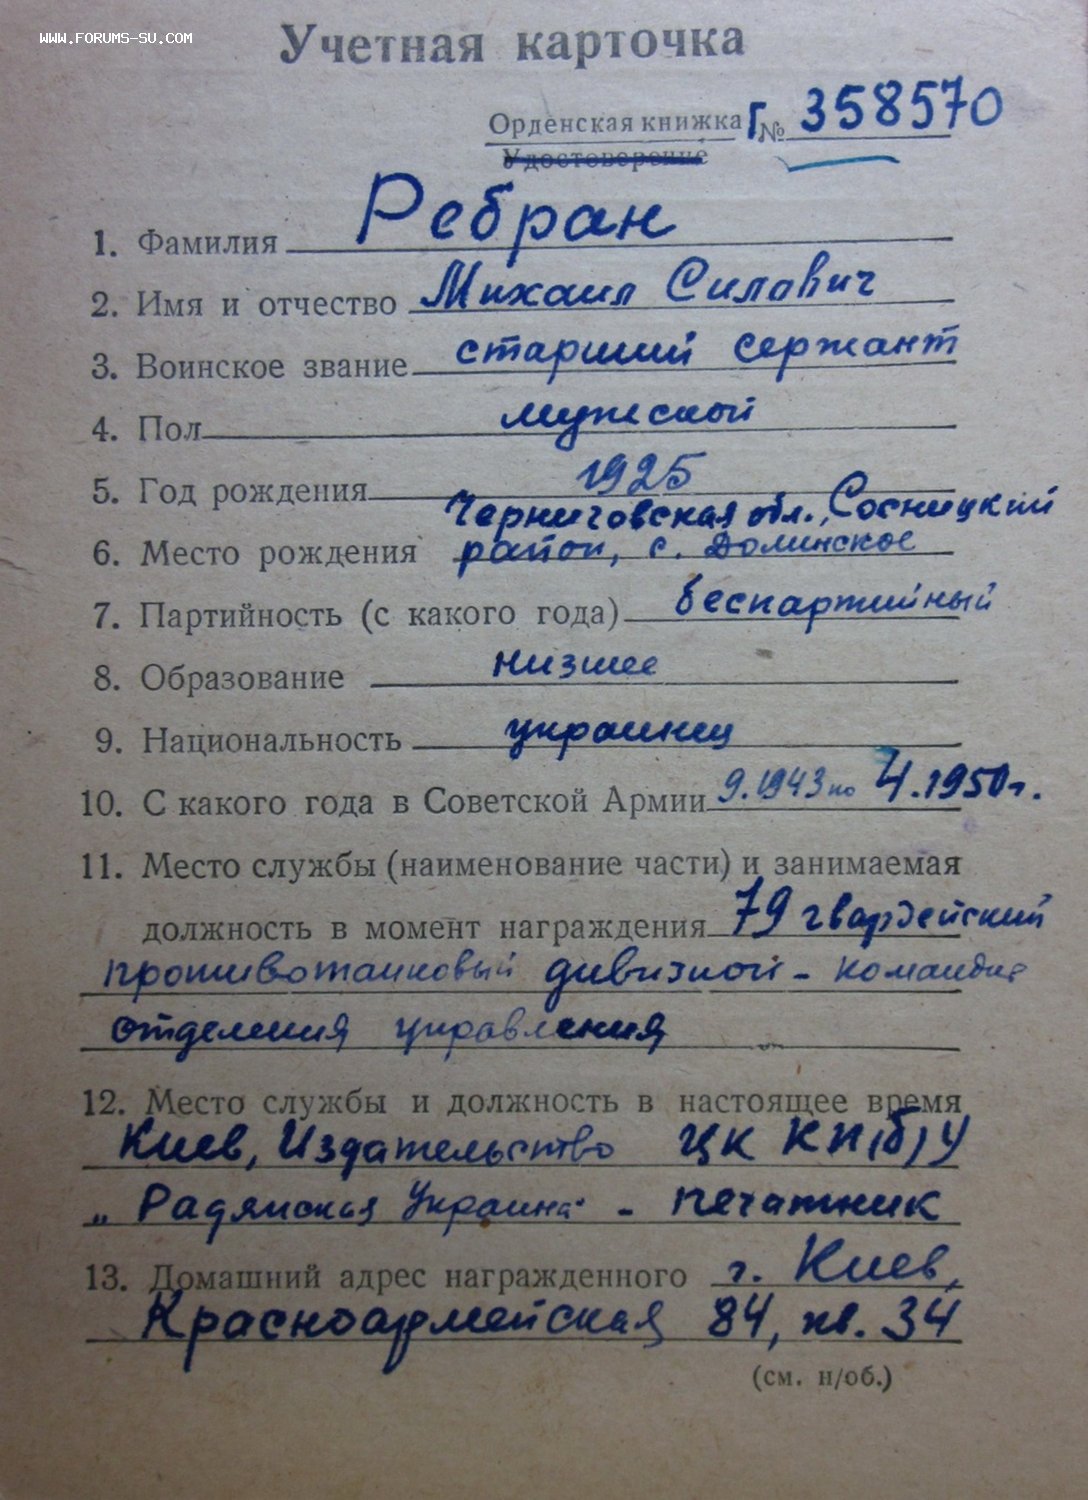 WWW.FORUMS-SU.COM
Учетная карточка
Орденская книжка Г № 358570
Удостоверение
1. Фамилия Ребран
2. Имя и отчество Михаил Силович
3. Воинское звание старший сержант
4. Пол мужской
5. Год рождения 1925
Черниговская обл., Сосницкий
6. Место рождения район, с. Долинское
7. Партийность (с какого года) беспартийный
8. Образование низшее
9. Национальность украинец
10. С какого года в Советской Армии 9.1943 по 4.1950 г.
11. Место службы (наименование части) и занимаемая
должность в момент награждения 79 гвардейский
противотанковый дивизион - командир
отделения управления
12. Место службы и должность в настоящее время
Киев, Издательство ЦК КП(б)У
„Радянская Украина" - печатник
13. Домашний адрес награжденного г. Киев,
Красноармейская 84, кв. 34
(см. н/об.)